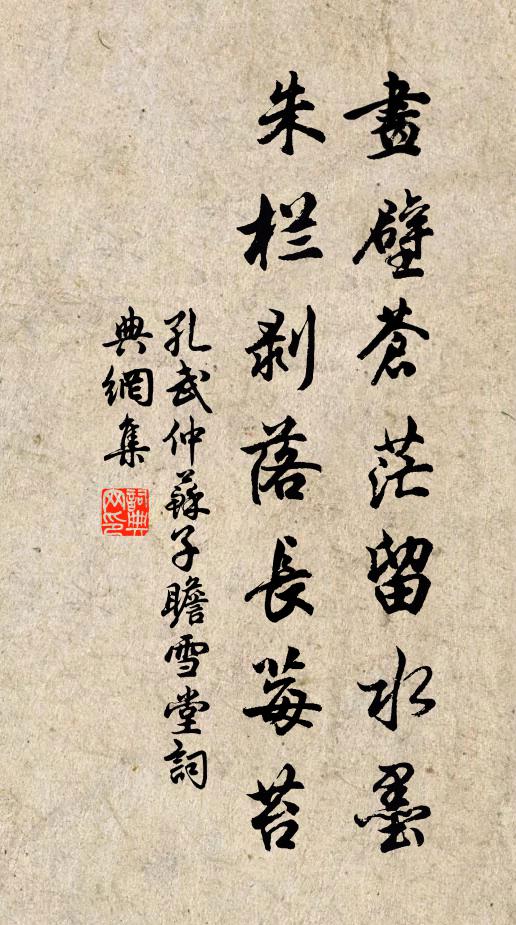 畫壁蒼茫留水墨
朱栏剥落長莓苔
孔武仲蘇子瞻雪堂詞
典網集
詞典
网印